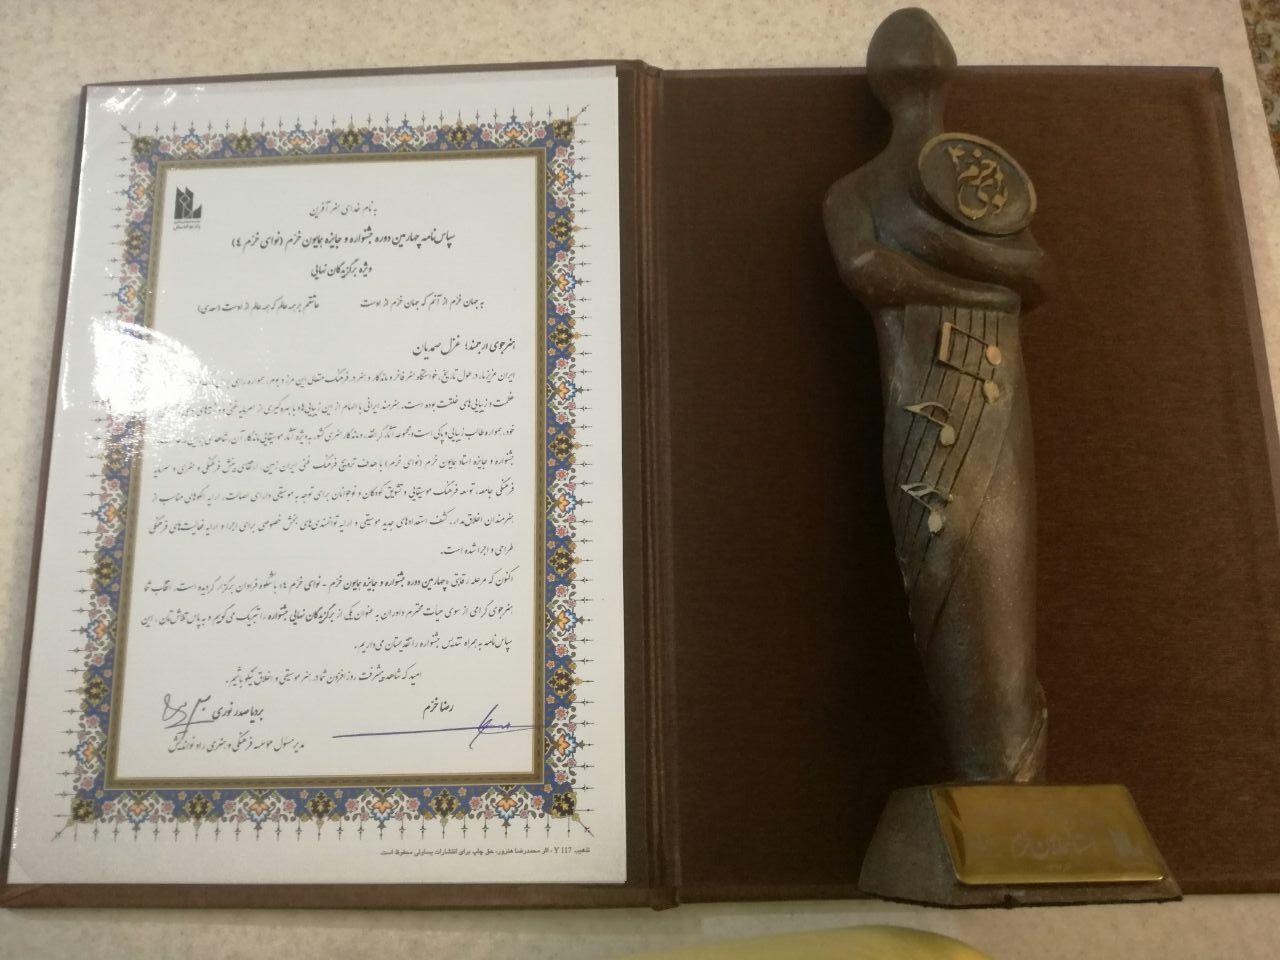 به نام خدای هنر آفرین
سپاس‌نامه چهارمین دوره جشنواره و جایزه همایون خرّم (نوای خرّم ٤)
ویژه برگزیدگان نهایی
به جهان خرّم از آنم که جهان خرّم از اوست عاشقم بر همه عالم که همه عالم از اوست (سعدی)
هنرجوی ارجمند؛ غزل صمدیان
ایران عزیز ما، در طول تاریخ، خواستگاه هنر فاخر و ماندگار و هنر در فرهنگ متعالی این مرز و بوم، همواره
عظمت و زیبایی‌های خلقت بوده است. هنرمند ایرانی با الهام از این زیبایی‌ها و با بهره گیری از سرمایه
خود، همواره طالب زیبایی و پاکی است؛ مجموعه آثار گرانقدر و ماندگار هنری کشور به ویژه آثار موسیقایی ماندگار آن، شاهد
جشنواره و جایزه استاد همایون خرّم (نوای خرّم) با هدف ترویج فرهنگ غنی ایران زمین، ارتقای بینش فرهنگی و هنری و سرمایه
فرهنگی جامعه، توسعه فرهنگ موسیقایی و تشویق کودکان و نوجوانان برای توجه به موسیقی دارای اصالت، ارایه الگوهای مناسب از
هنرمندان اخلاق مدار، کشف استعدادهای جدید موسیقی و ارایه توانمندی‌های بخش خصوصی برای اجرا و ارایه فعالیت‌های فرهنگی
طراحی و اجرا شده است.
اکنون که مرحله رقابتی «چهارمین دوره جشنواره و جایزه همایون خرّم - نوای خرّم ٤» با شکوه فراوان برگزار گردیده است، انتخاب شما
هنرجوی گرامی از سوی هیات محترم داوران به عنوان یکی از برگزیدگان نهایی جشنواره را تبریک می‌گوییم و به پاس تلاش‌تان، این
سپاس‌نامه به همراه تندیس جشنواره را تقدیمتان می‌داریم.
امید که شاهد پیشرفت روز افزون شما در هنر موسیقی و اخلاق نیکو باشیم.
رضا خرّم
بردیا صدر نوری
مدیر مسئول مؤسسه فرهنگی و هنری راد نواندیش
تذهیب Y 117 - اثر محمدرضا هنرور، حق چاپ برای انتشارات یساولی محفوظ است.
نوای خرّم ٤